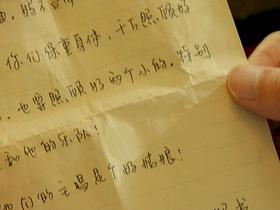 你们保重身体，千万照顾好
，也要照顾好两个小的，特别
和他的乐队！
他们的主唱是个好姑娘！